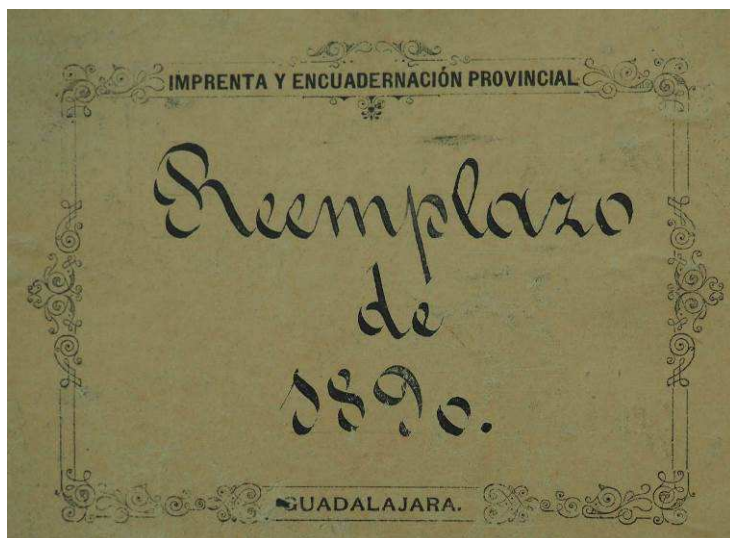 IMPRENTA Y ENCUADERNACIÓN PROVINCIAL
Reemplazo
de
1890.
GUADALAJARA.